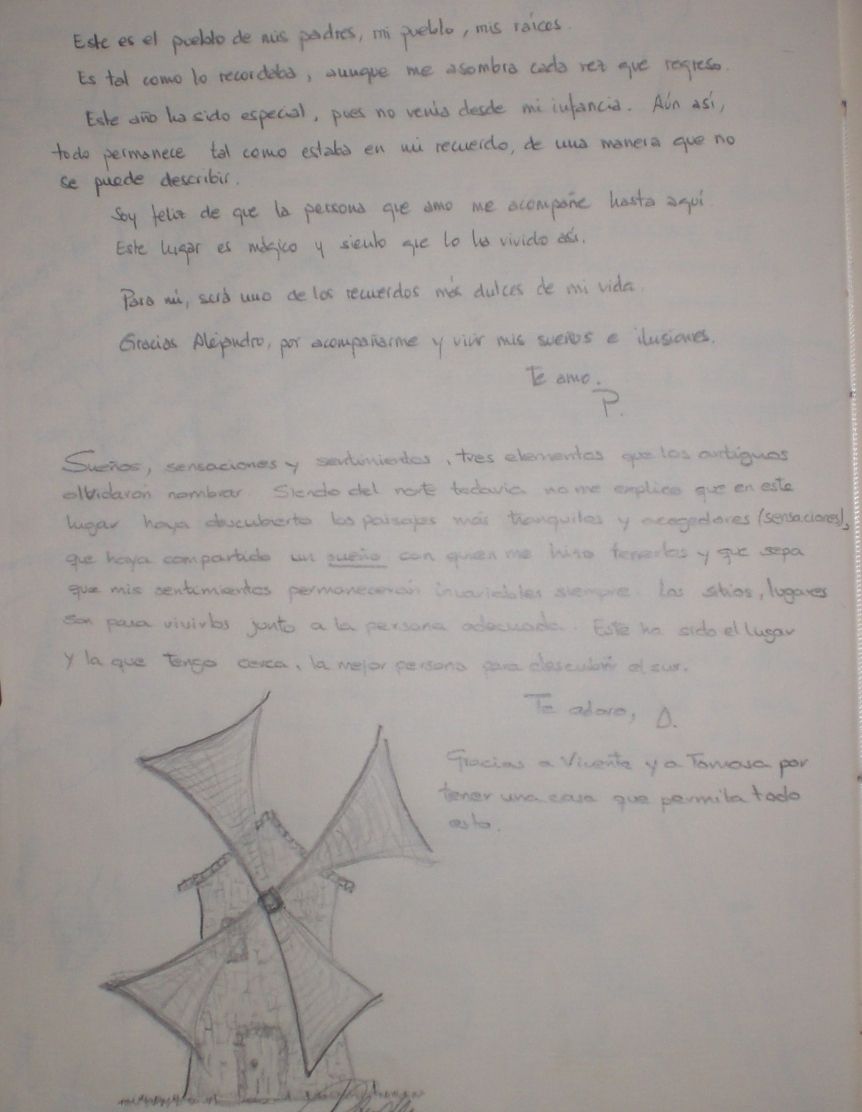 Este es el pueblo de mis padres, mi pueblo, mis raíces.
Es tal como lo recordaba, aunque me asombra cada vez que regreso.
Este año ha sido especial, pues no venía desde mi infancia. Aún así,
todo permanece tal como estaba en mi recuerdo, de una manera que no
se puede describir.
Soy feliz de que la persona que amo me acompañe hasta aquí.
Este lugar es mágico y siento que lo he vivido así.
Para mí, será uno de los recuerdos más dulces de mi vida.
Gracias Alejandro, por acompañarme y vivir mis sueños e ilusiones.
Te amo.
P.
Sueños, sensaciones y sentimientos, tres elementos que los antiguos
olvidaron nombrar. Siendo del norte todavía no me explico que en este
lugar haya descubierto los paisajes más tranquilos y acogedores (sensaciones),
que haya compartido un sueño con quien me hizo tenerlos y que sepa
que mis sentimientos permanecerán invariables siempre. Los sitios, lugares
son para vivirlos junto a la persona adecuada. Este ha sido el lugar
y la que tengo cerca, la mejor persona para descubrir el sur.
Te adoro, A.
Gracias a Vicente y a Tomasa por
tener una casa que permita todo
esto.